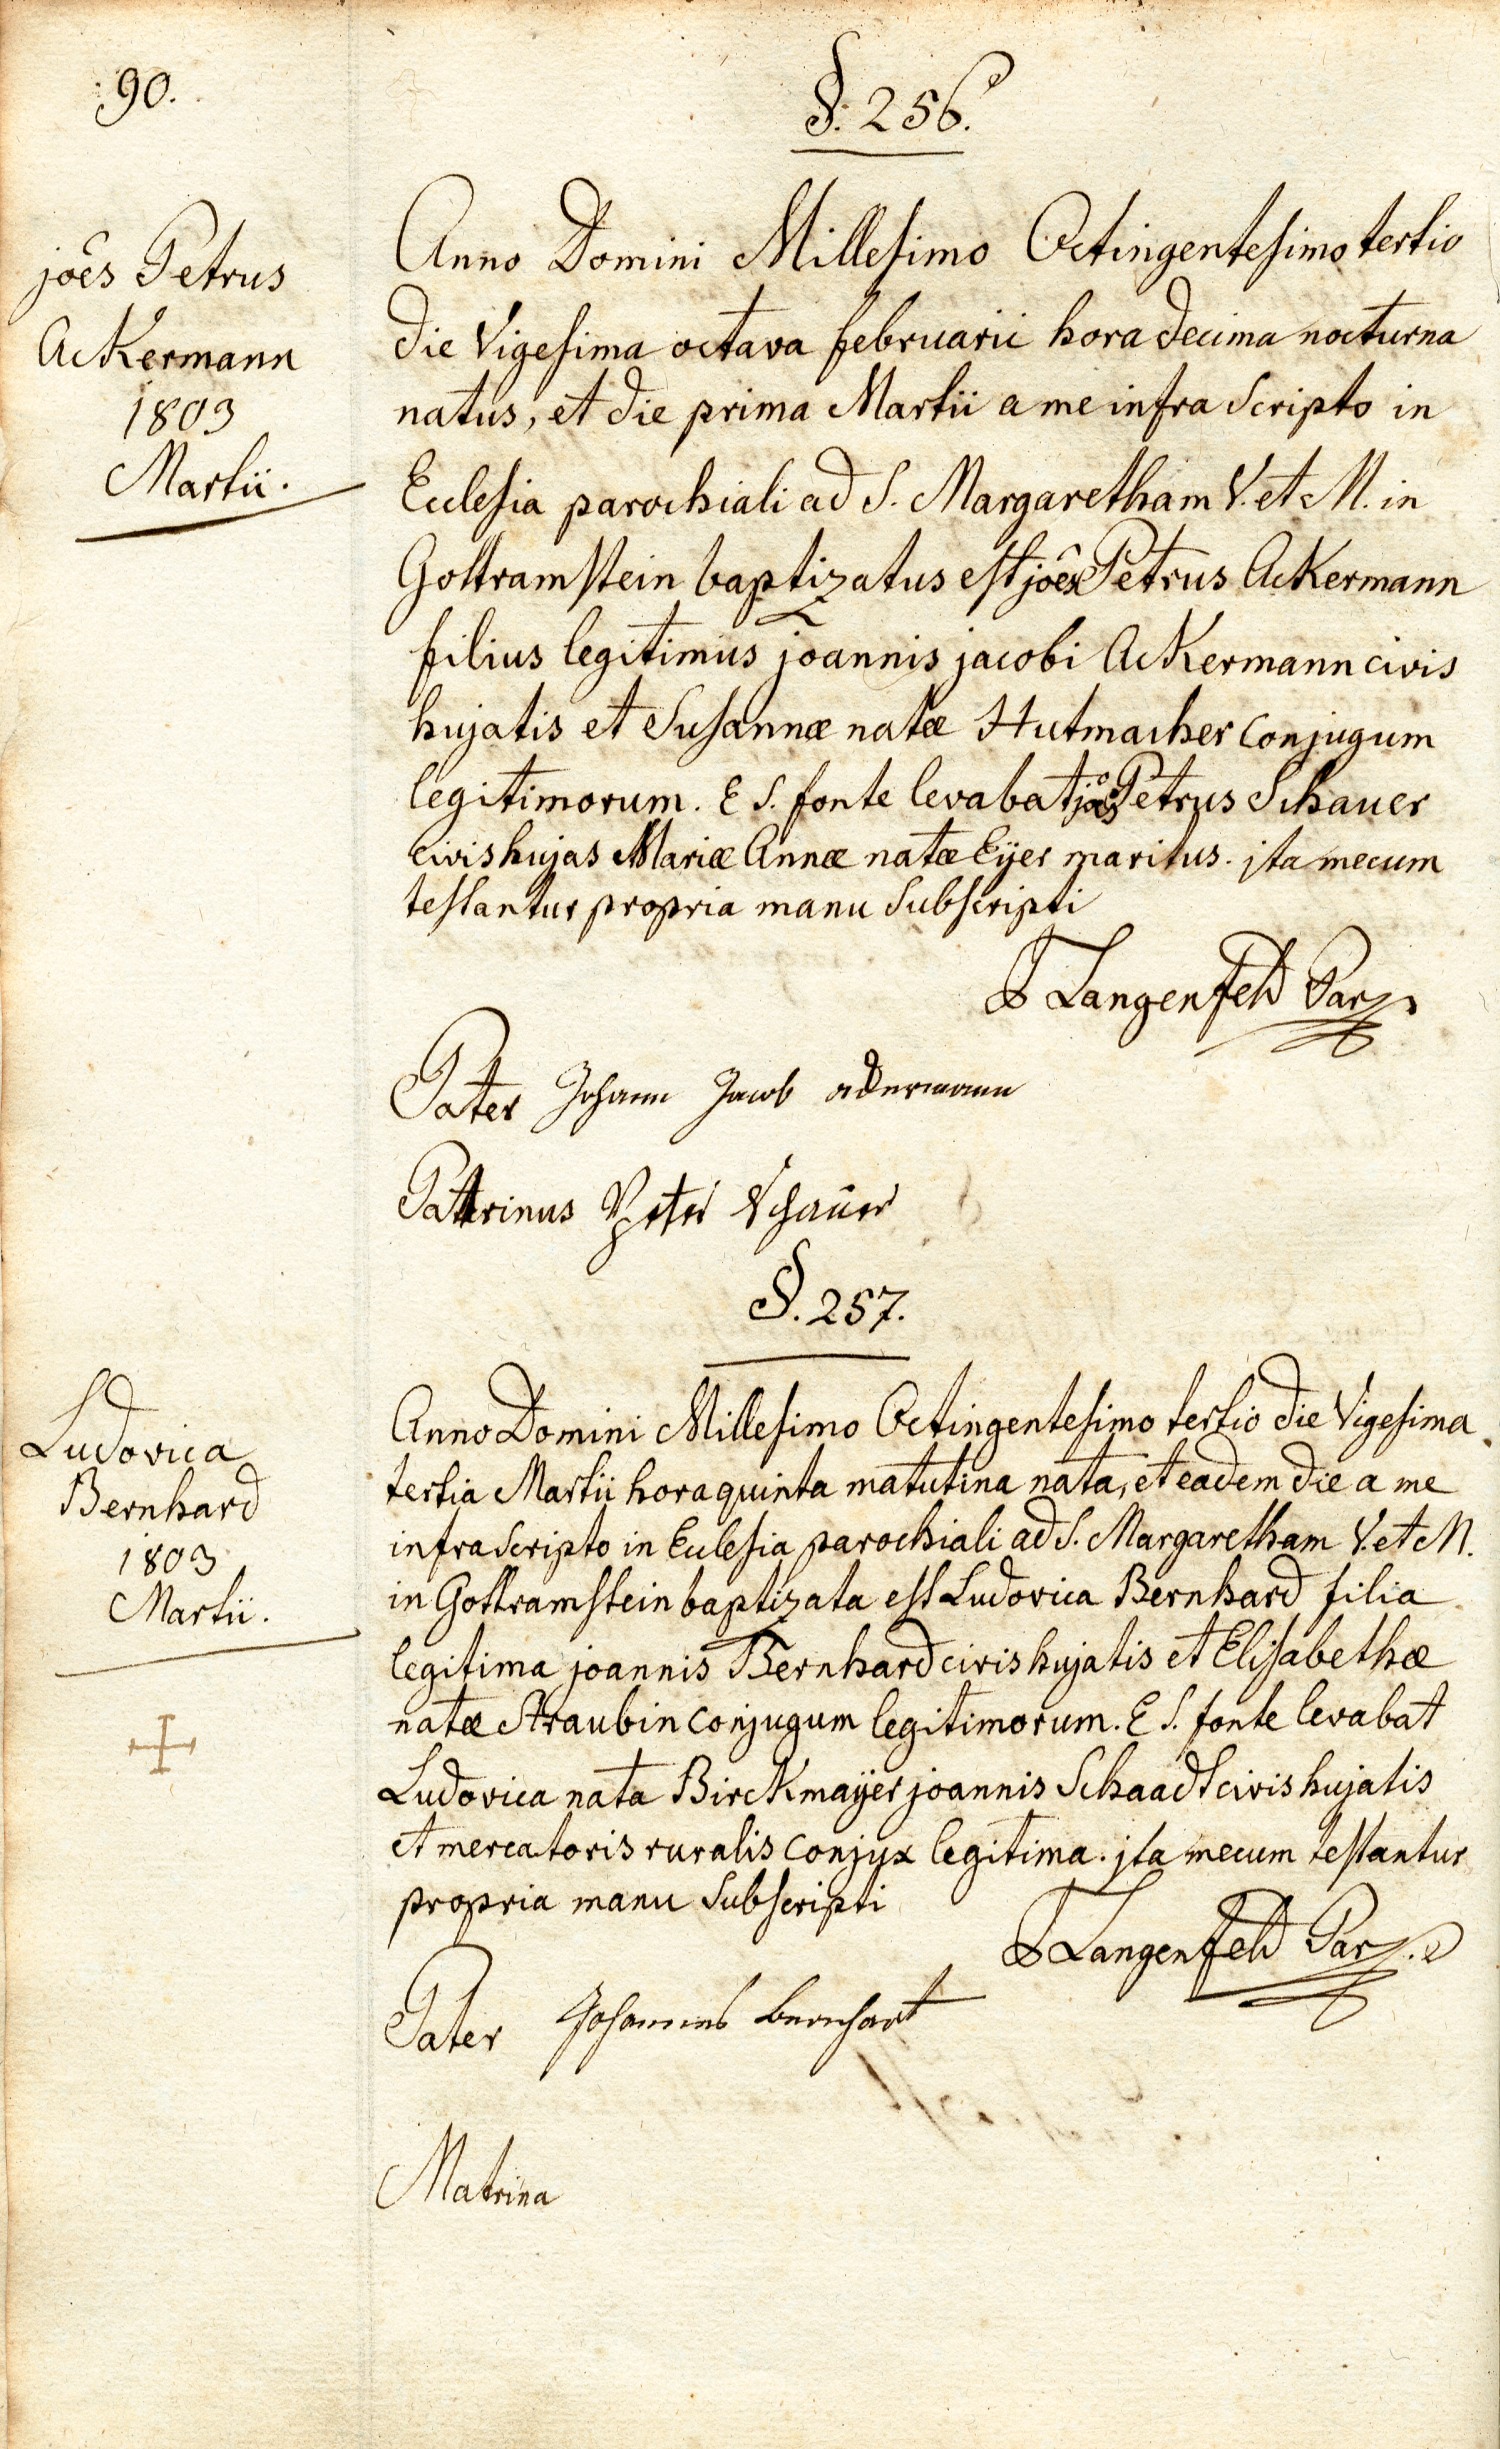 90.
§. 256.
joês Petrus
AcKermann
1803
Martii.
Anno Domini Millesimo Octingentesimo tertio
die Vigesima octava februarii hora decima nocturna
natus, et die prima Martii a me infra Scripto in
Ecclesia parochiali ad S. Margaretham V. et M. in
Gottramstein baptizatus est joês Petrus AcKermann
filius legitimus joannis jacobi AcKermann civis
hujatis et Susannæ natæ Hutmacher Conjugum
legitimorum. E S. fonte levabat joês Petrus Schauer
civis hujas Mariæ Annæ natæ Eÿer maritus. jta mecum
testantur propria manu Subscripti
Langenfeld Par
Pater Johann Jacob ackermann
Patrinus Peter Schauer
§. 257.
Ludovica
Bernhard
1803
Martii.
Anno Domini Millesimo Octingentesimo tertio die Vigesima
tertia Martii hora quinta matutina nata, et eadem die a me
infra Scripto in Ecclesia parochiali ad S. Margaretham V. et M.
in Gottramstein baptizata est Ludovica Bernhard filia
legitima joannis Bernhard civis hujatis et Elisabethæ
natæ Straubin Conjugum legitimorum. E S. fonte levabat
Ludovica nata BircKmaÿer joannis Schaadt civis hujatis
et mercatoris ruralis Conjux legitima. jta mecum testantur
propria manu Subscripti
Langenfeld Par
Pater Johannes bernhart
Matrina